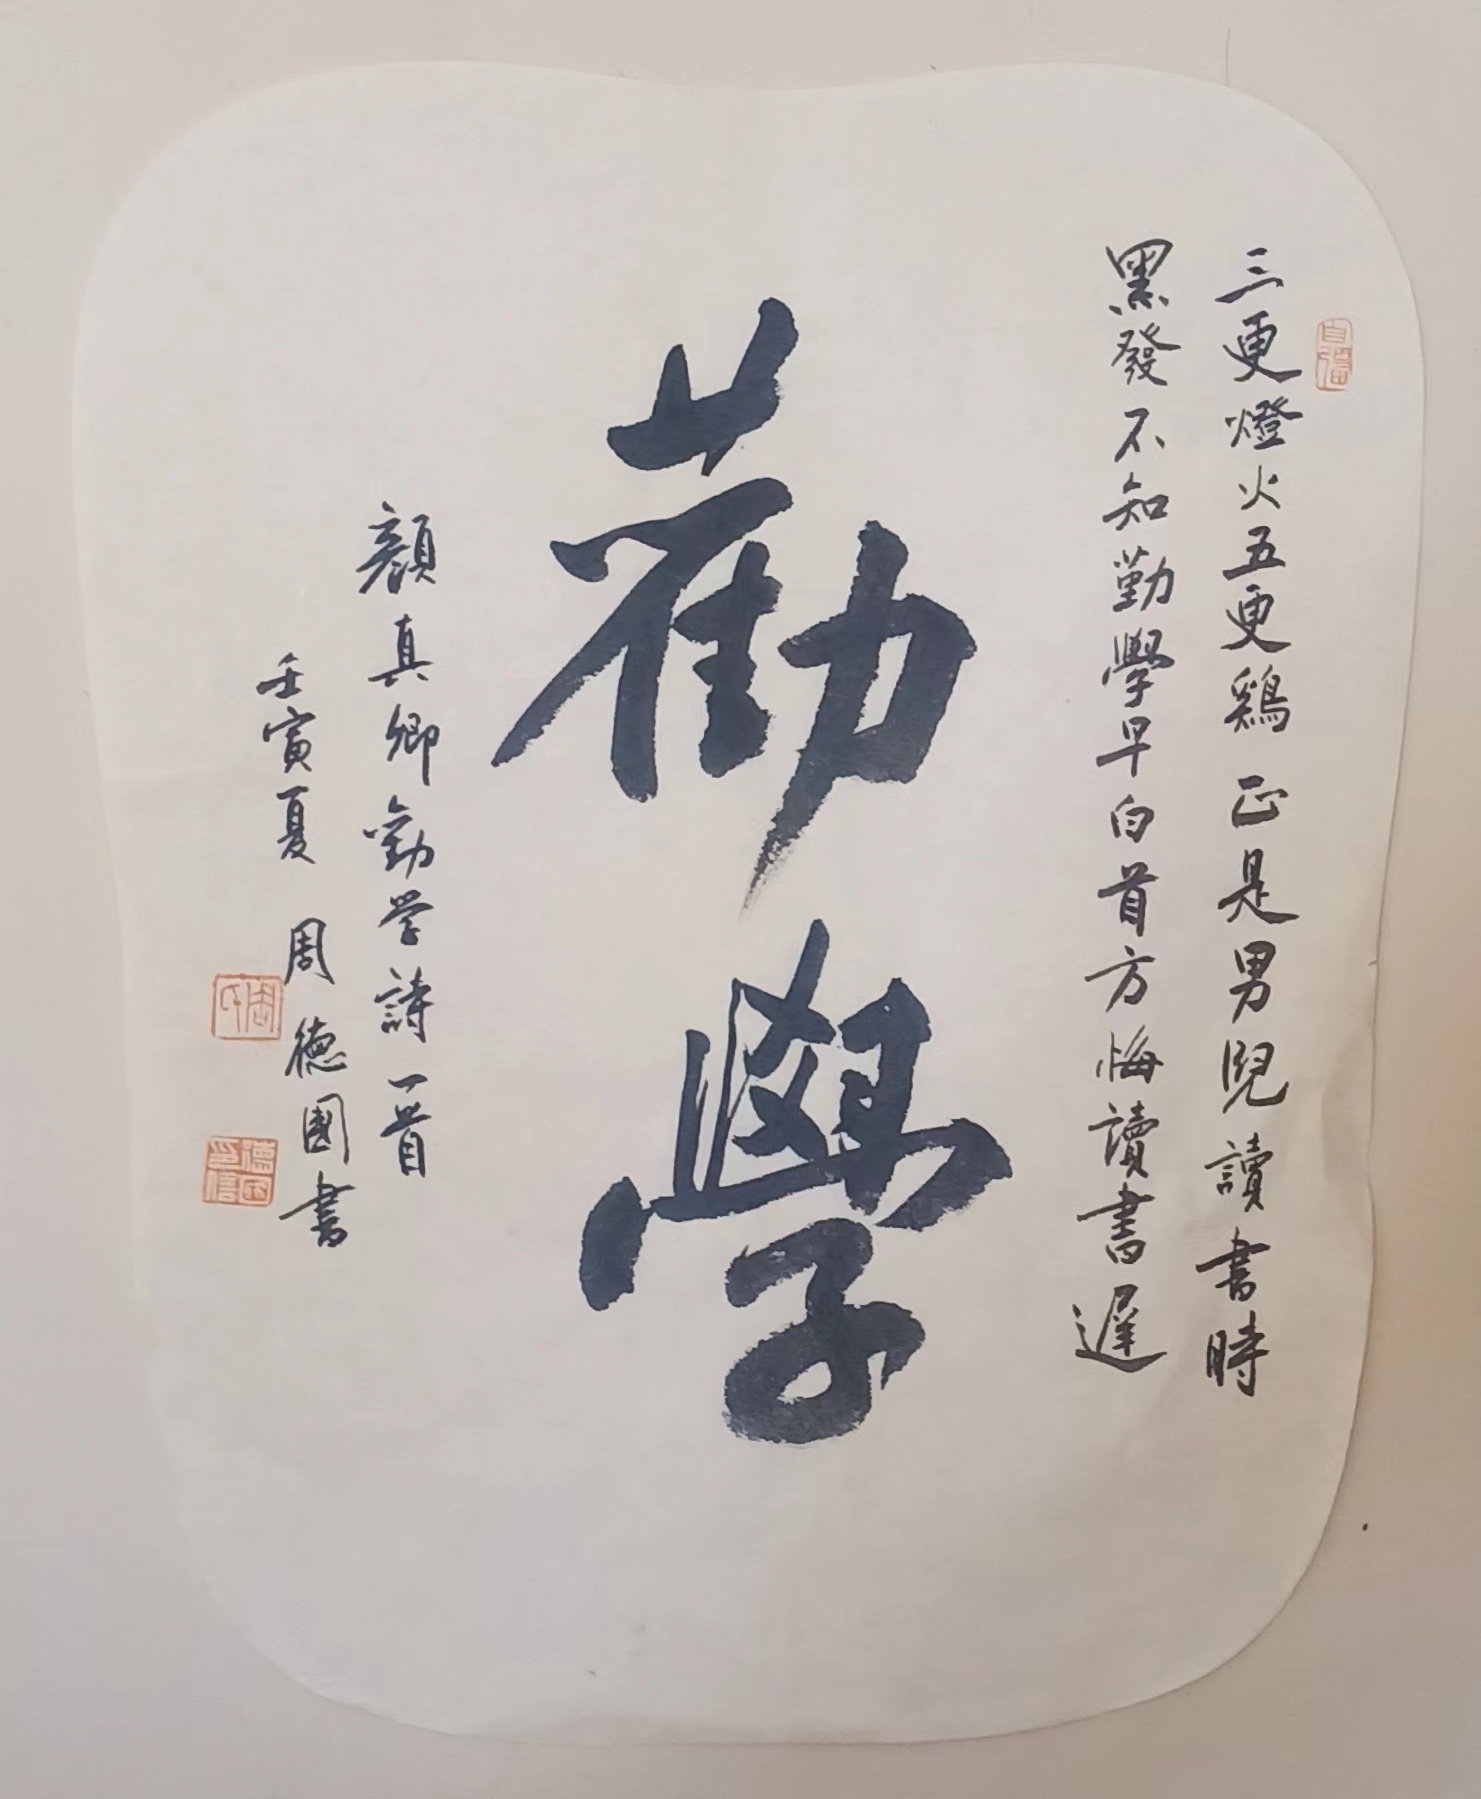 三更燈火五更鷄正是男兒讀書時
黑發不知勤學早白首方悔讀書遲
勸學
顏真卿勸学詩一首
壬寅夏 周德國書
自強
周氏
德國印信